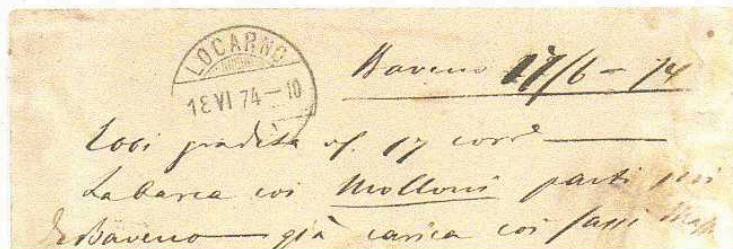 LOCARNO
18 VI 74 — 10
Baveno 17/6 - 74
gradita 17 corr.e
La barca coi Molloni partì
Baveno già carica coi sassi